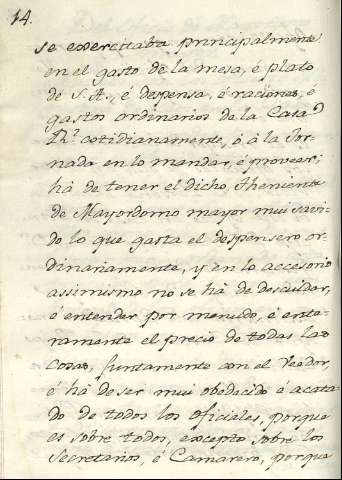 14.
se exercitaba principalmente
en el gasto de la mesa, é plato
de S. A., é despensa, é raciones, é
gastos ordinarios de la Casa
Rl. cotidianamente, ó á la Jor-
nada en lo mandar, é proveer;
há de tener el dicho Theniente
de Mayordomo mayor mui savi-
do lo que gasta el despensero or-
dinariamente, y en lo accesorio
assimismo no se há de descuidar,
é entender por menudo, é ente-
ramente el precio de todas las
cosas, juntamente con el Veedor,
é há de ser mui obedecido é acata-
do de todos los oficiales, porque
es sobre todos, excepto sobre los
Secretarios, é Camarero, porque